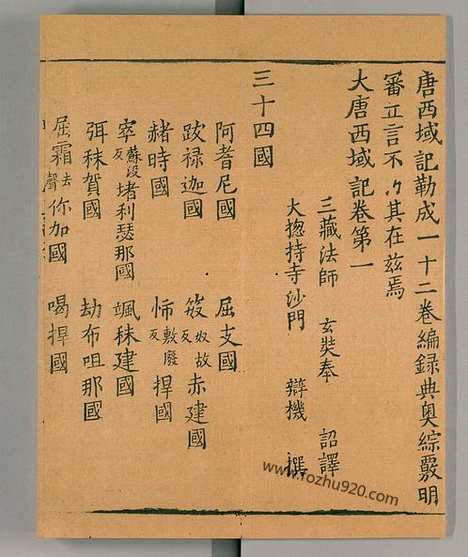 唐西域記勒成一十二卷編録典奥綜覈明
審立言不朽其在茲焉
大唐西域記卷第一
三藏法師 玄奘奉 詔譯
大揔持寺沙門 辯機 撰
三十四國
阿耆尼國 屈支國
跋禄迦國 笯奴故反赤建國
赭時國 㤄敷廢反捍國
窣蘇没反堵利瑟那國 颯秣建國
弭秣賀國 劫布呾那國
屈霜去聲你加國 喝捍國
www.fozhu920.com